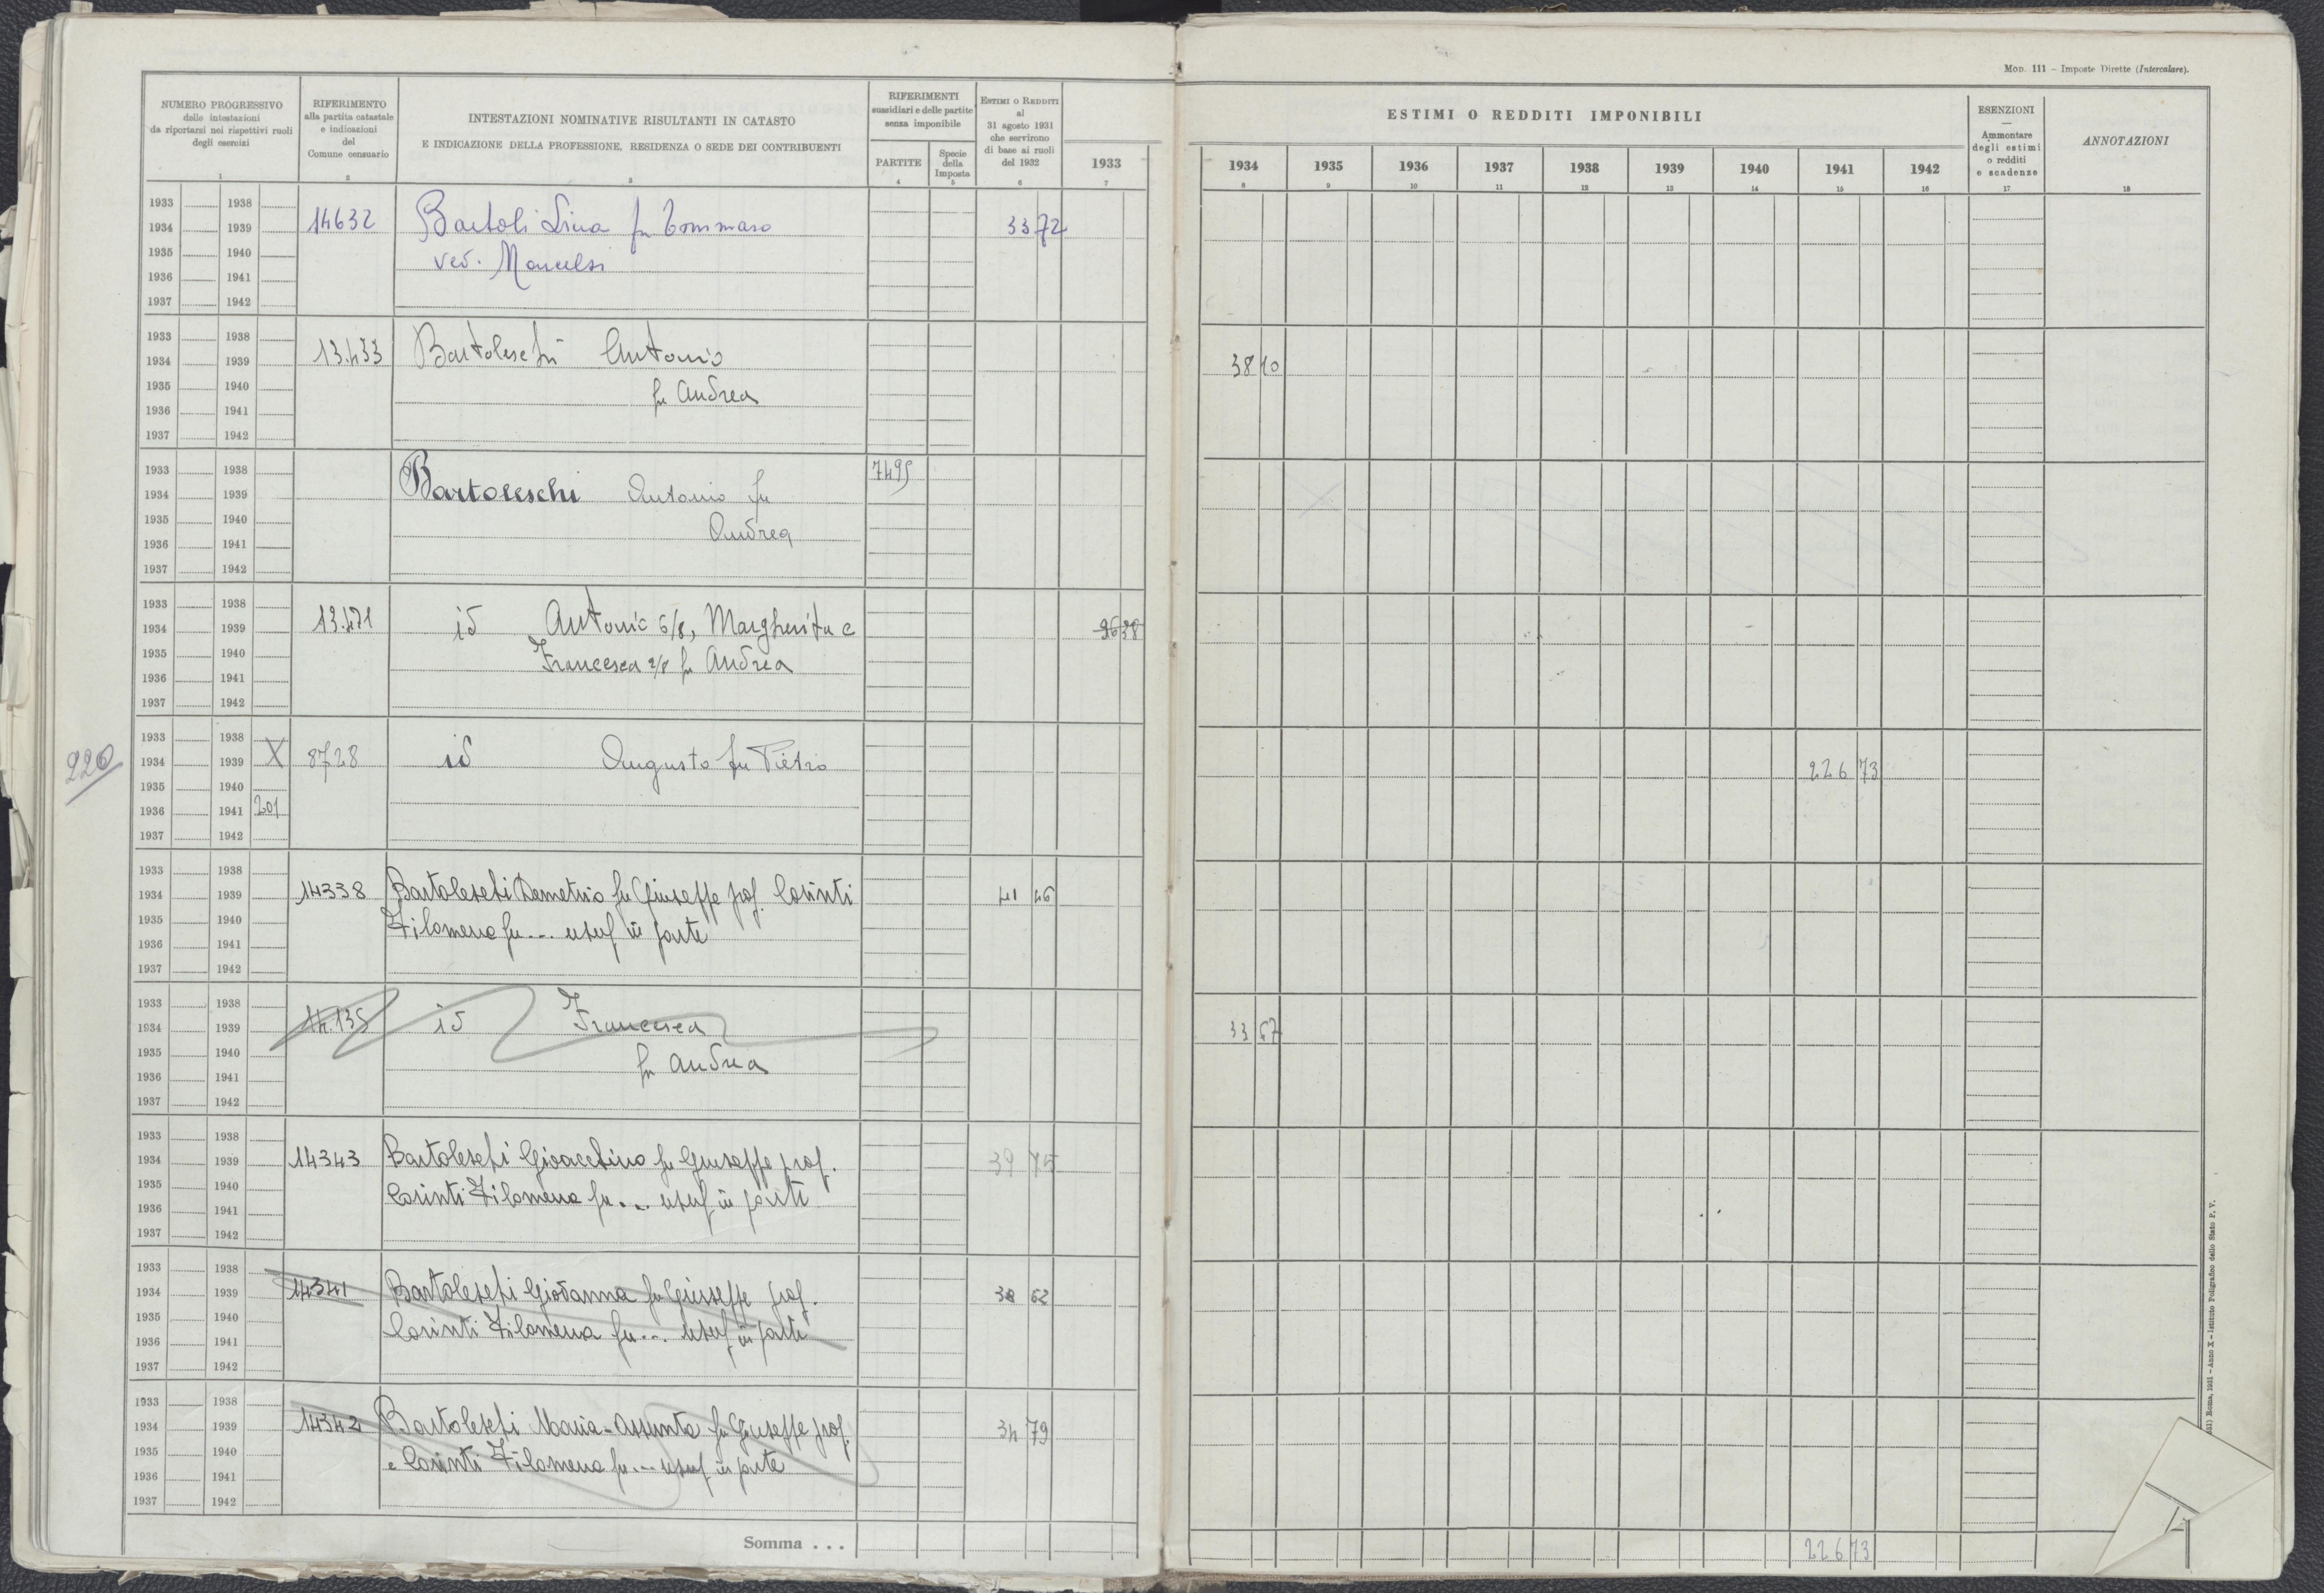 Mod. 111 – Imposte Dirette (Intercalare).
NUMERO PROGRESSIVO
delle intestazioni
da riportarsi nei rispettivi ruoli
degli esercizi
1
RIFERIMENTO
alla partita catastale
e indicazioni
del
Comune censuario
2
INTESTAZIONI NOMINATIVE RISULTANTI IN CATASTO
E INDICAZIONE DELLA PROFESSIONE, RESIDENZA O SEDE DEI CONTRIBUENTI
3
RIFERIMENTI
sussidiari e delle partite
senza imponibile
PARTITE
4
Specie
della
Imposta
5
Estimi o Redditi
al
31 agosto 1931
che servirono
di base ai ruoli
del 1932
6
1933
7
ESTIMI O REDDITI IMPONIBILI
1934 1935 1936 1937 1938 1939 1940 1941 1942
8 9 10 11 12 13 14 15 16
ESENZIONI
—
Ammontare
degli estimi
o redditi
e scadenze
17
ANNOTAZIONI
18
1933 1938
1934 1939 14632 Bartoli Lina fu Tommaso 33 72
1935 1940 ved.
1936 1941
1937 1942
1933 1938
1934 1939 13.433 Bartoleschi Antonio 38 10
1935 1940 fu Andrea
1936 1941
1937 1942
1933 1938 7495
1934 1939 Bartoleschi Antonio fu
1935 1940 Andrea
1936 1941
1937 1942
1933 1938
1934 1939 13.471 id Antonio 6/8, Margherita e 96 38
1935 1940 Francesca 2/8 fu Andrea
1936 1941
1937 1942
1933 1938
220 1934 1939 X 8728 id Augusto fu Pietro 226 73
1935 1940
1936 1941 201
1937 1942
1933 1938
1934 1939 14338 Bartoleschi Demetrio fu Giuseppe prop. Corinti 41 46
1935 1940 Filomena fu ... usuf in parte
1936 1941
1937 1942
1933 1938
1934 1939 14.135 id Francesca 33 67
1935 1940 fu Andrea
1936 1941
1937 1942
1933 1938
1934 1939 14343 Bartoleschi Gioacchino fu Giuseppe prop. 39 75
1935 1940 Corinti Filomena fu ... usuf in parte
1936 1941
1937 1942
1933 1938
1934 1939 14341 Bartoleschi Giovanna fu Giuseppe prop. 38 62
1935 1940 Corinti Filomena fu ... usuf in parte
1936 1941
1937 1942
1933 1938
1934 1939 14342 Bartoleschi Maria-Assunta fu Giuseppe prop. 34 79
1935 1940 e Corinti Filomena fu ... usuf in parte
1936 1941
1937 1942
Somma . . . 226 73
Roma, 1931 – Anno X – Istituto Poligrafico dello Stato P. V.